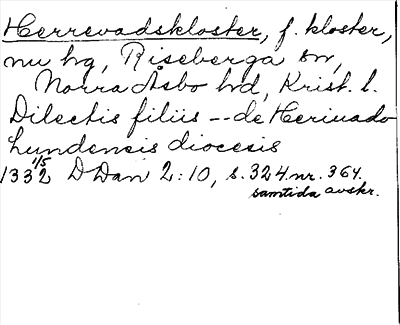 Herrevadskloster, f. kloster,
nu hg, Riseberga sn,
Norra Åsbo hd, Krist. l.
Dilectis filiis -- de Heriuado
lundensis diocesis
1332 1/5 DDan 2:10, s. 324 nr. 364.
samtida avskr.